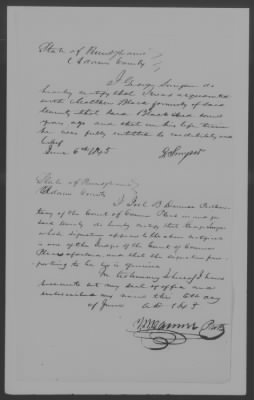 State of Pennsylvania
Adams County
I George Smyser do
hereby certify that I was acquainted
with Matthew Black formerly of said
County, that said Black died some
years ago and that in his life time
he was fully entitled to credibility and
belief
June 6th 1845 G. Smyser
State of Pennsylvania
Adams County
I Joel B Danner Prothono
tary of the Court of Common Pleas in and for
said County do hereby certify that George Smyser
whose signature appears to the above certificate
is one of the Judges of the Court of Common
Pleas aforesaid, and that the signature pur
porting to be his is genuine
In testimony whereof I have
hereunto set my seal of office and
subscribed my name this 6th day
of June AD 1845
Danner Proth